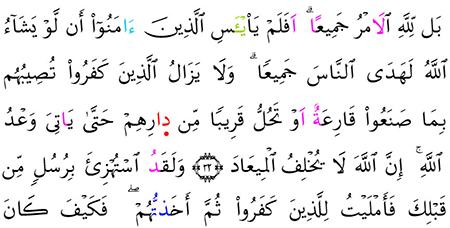 بَل لِّلَّهِ اِ۬لَامْرُ جَمِيعًاۗ اَفَلَمْ يَاْيْـَٔسِ اِ۬لذِينَ ءَامَنُوٓاْ أَن لَّوْ يَشَآءُ
اُ۬للَّهُ لَهَدَى اَ۬لنَّاسَ جَمِيعًاۗ وَلَا يَزَالُ اُ۬لذِينَ كَفَرُواْ تُصِيبُهُم
بِمَا صَنَعُواْ قَارِعَةٌ اَوْ تَحُلُّ قَرِيبًا مِّن دِارِهِمْ حَتَّىٰ يَاتِىَ وَعْدُ
اُ۬للَّهِۚ إِنَّ اَ۬للَّهَ لَا يُخْلِفُ اُ۬لْمِيعَادَ ۝٣٢ وَلَقَدُ اُ۟سْتُهْزِئَ بِرُسُلٍ مِّن
قَبْلِكَ فَأَمْلَيْتُ لِلذِينَ كَفَرُواْ ثُمَّ أَخَذتُّهُمْۖ فَكَيْفَ كَانَ